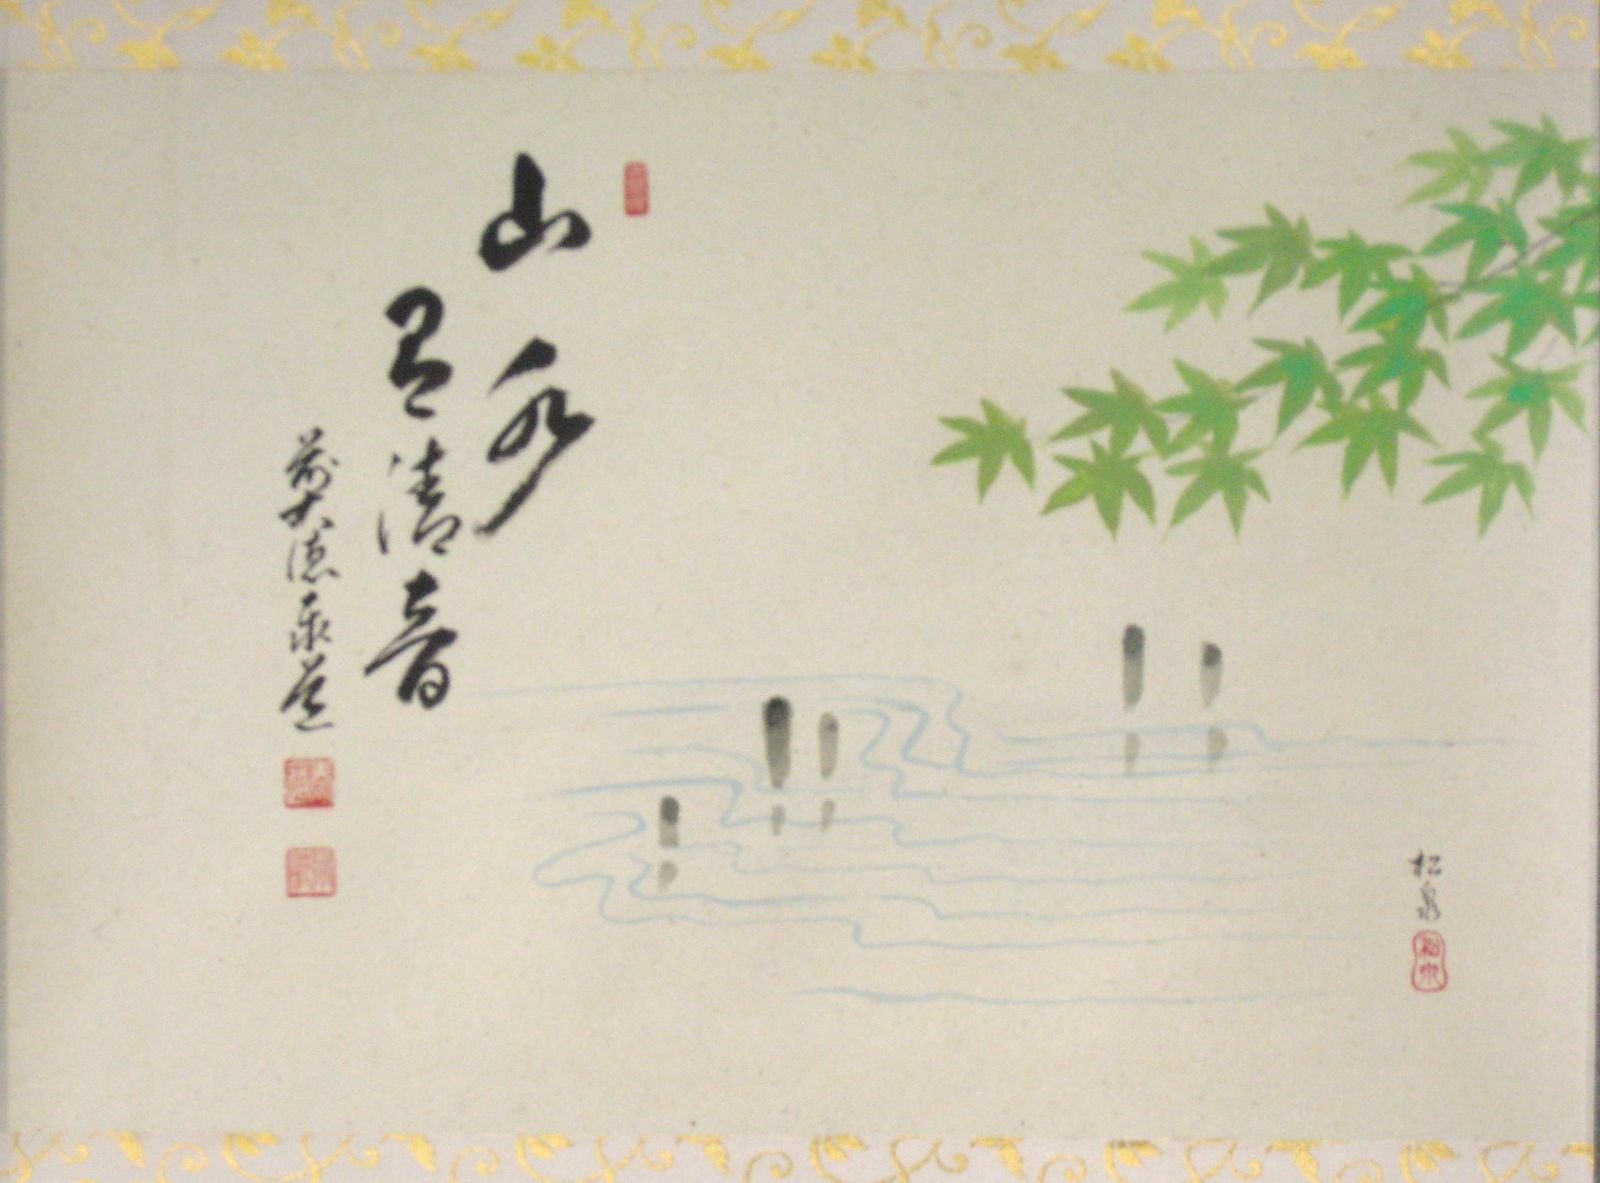 山水
有清音
前大徳
松泉
松泉